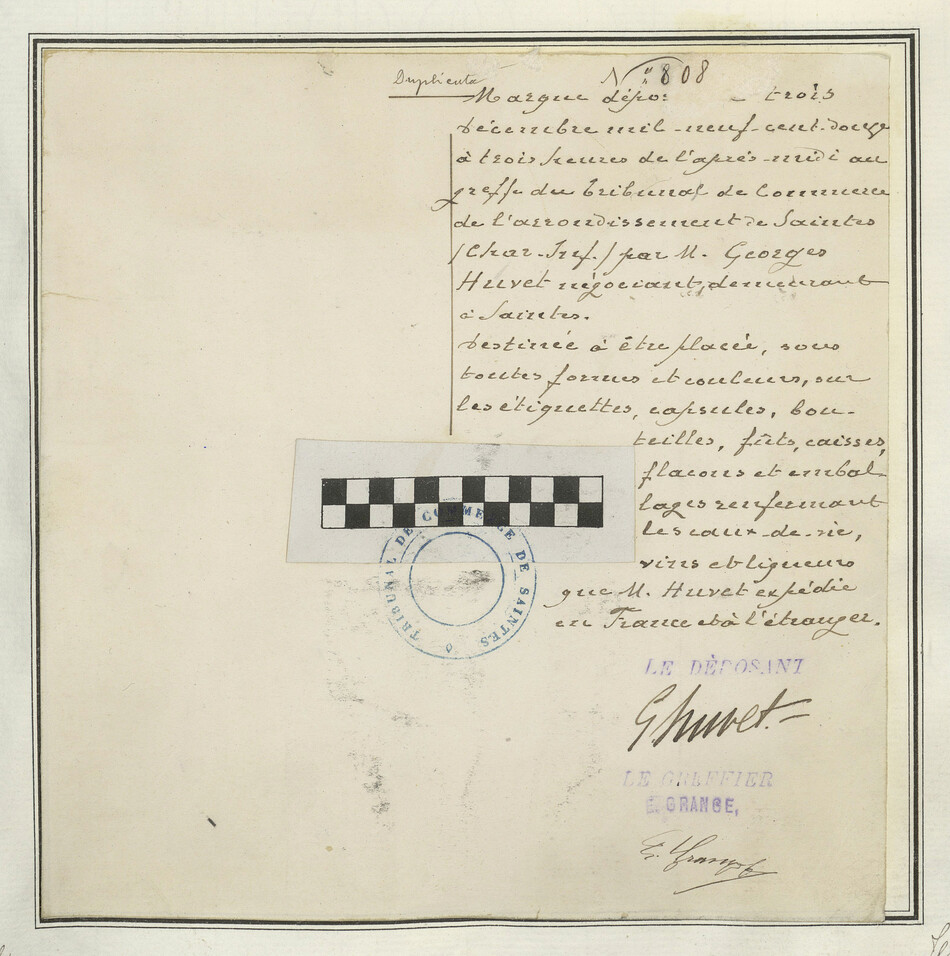 Duplicata
N° 808
Marque dépo trois
décembre mil-neuf-cent-douze
à trois heures de l'après-midi au
greffe du Tribunal de Commerce
de l'arrondissement de Saintes
/Char-Inf./ par M. Georges
Huvet négociant, demeurant
à Saintes.
Destinée à être placée, sous
toutes formes et couleurs, sur
les étiquettes, capsules, bou-
teilles, fûts, caisses,
flacons et embal-
lages renfermant
les eaux-de-vie,
vins et liqueurs
que M. Huvet expédie
en France et à l'étranger.
TRIBUNAL DE COMMERCE DE SAINTES
LE DÉPOSANT
G Huvet
LE GREFFIER
E. GRANGE,
E. Grange